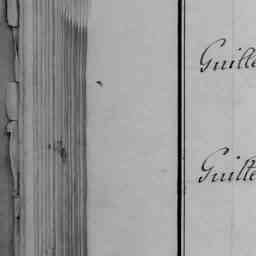 Guille
Guille